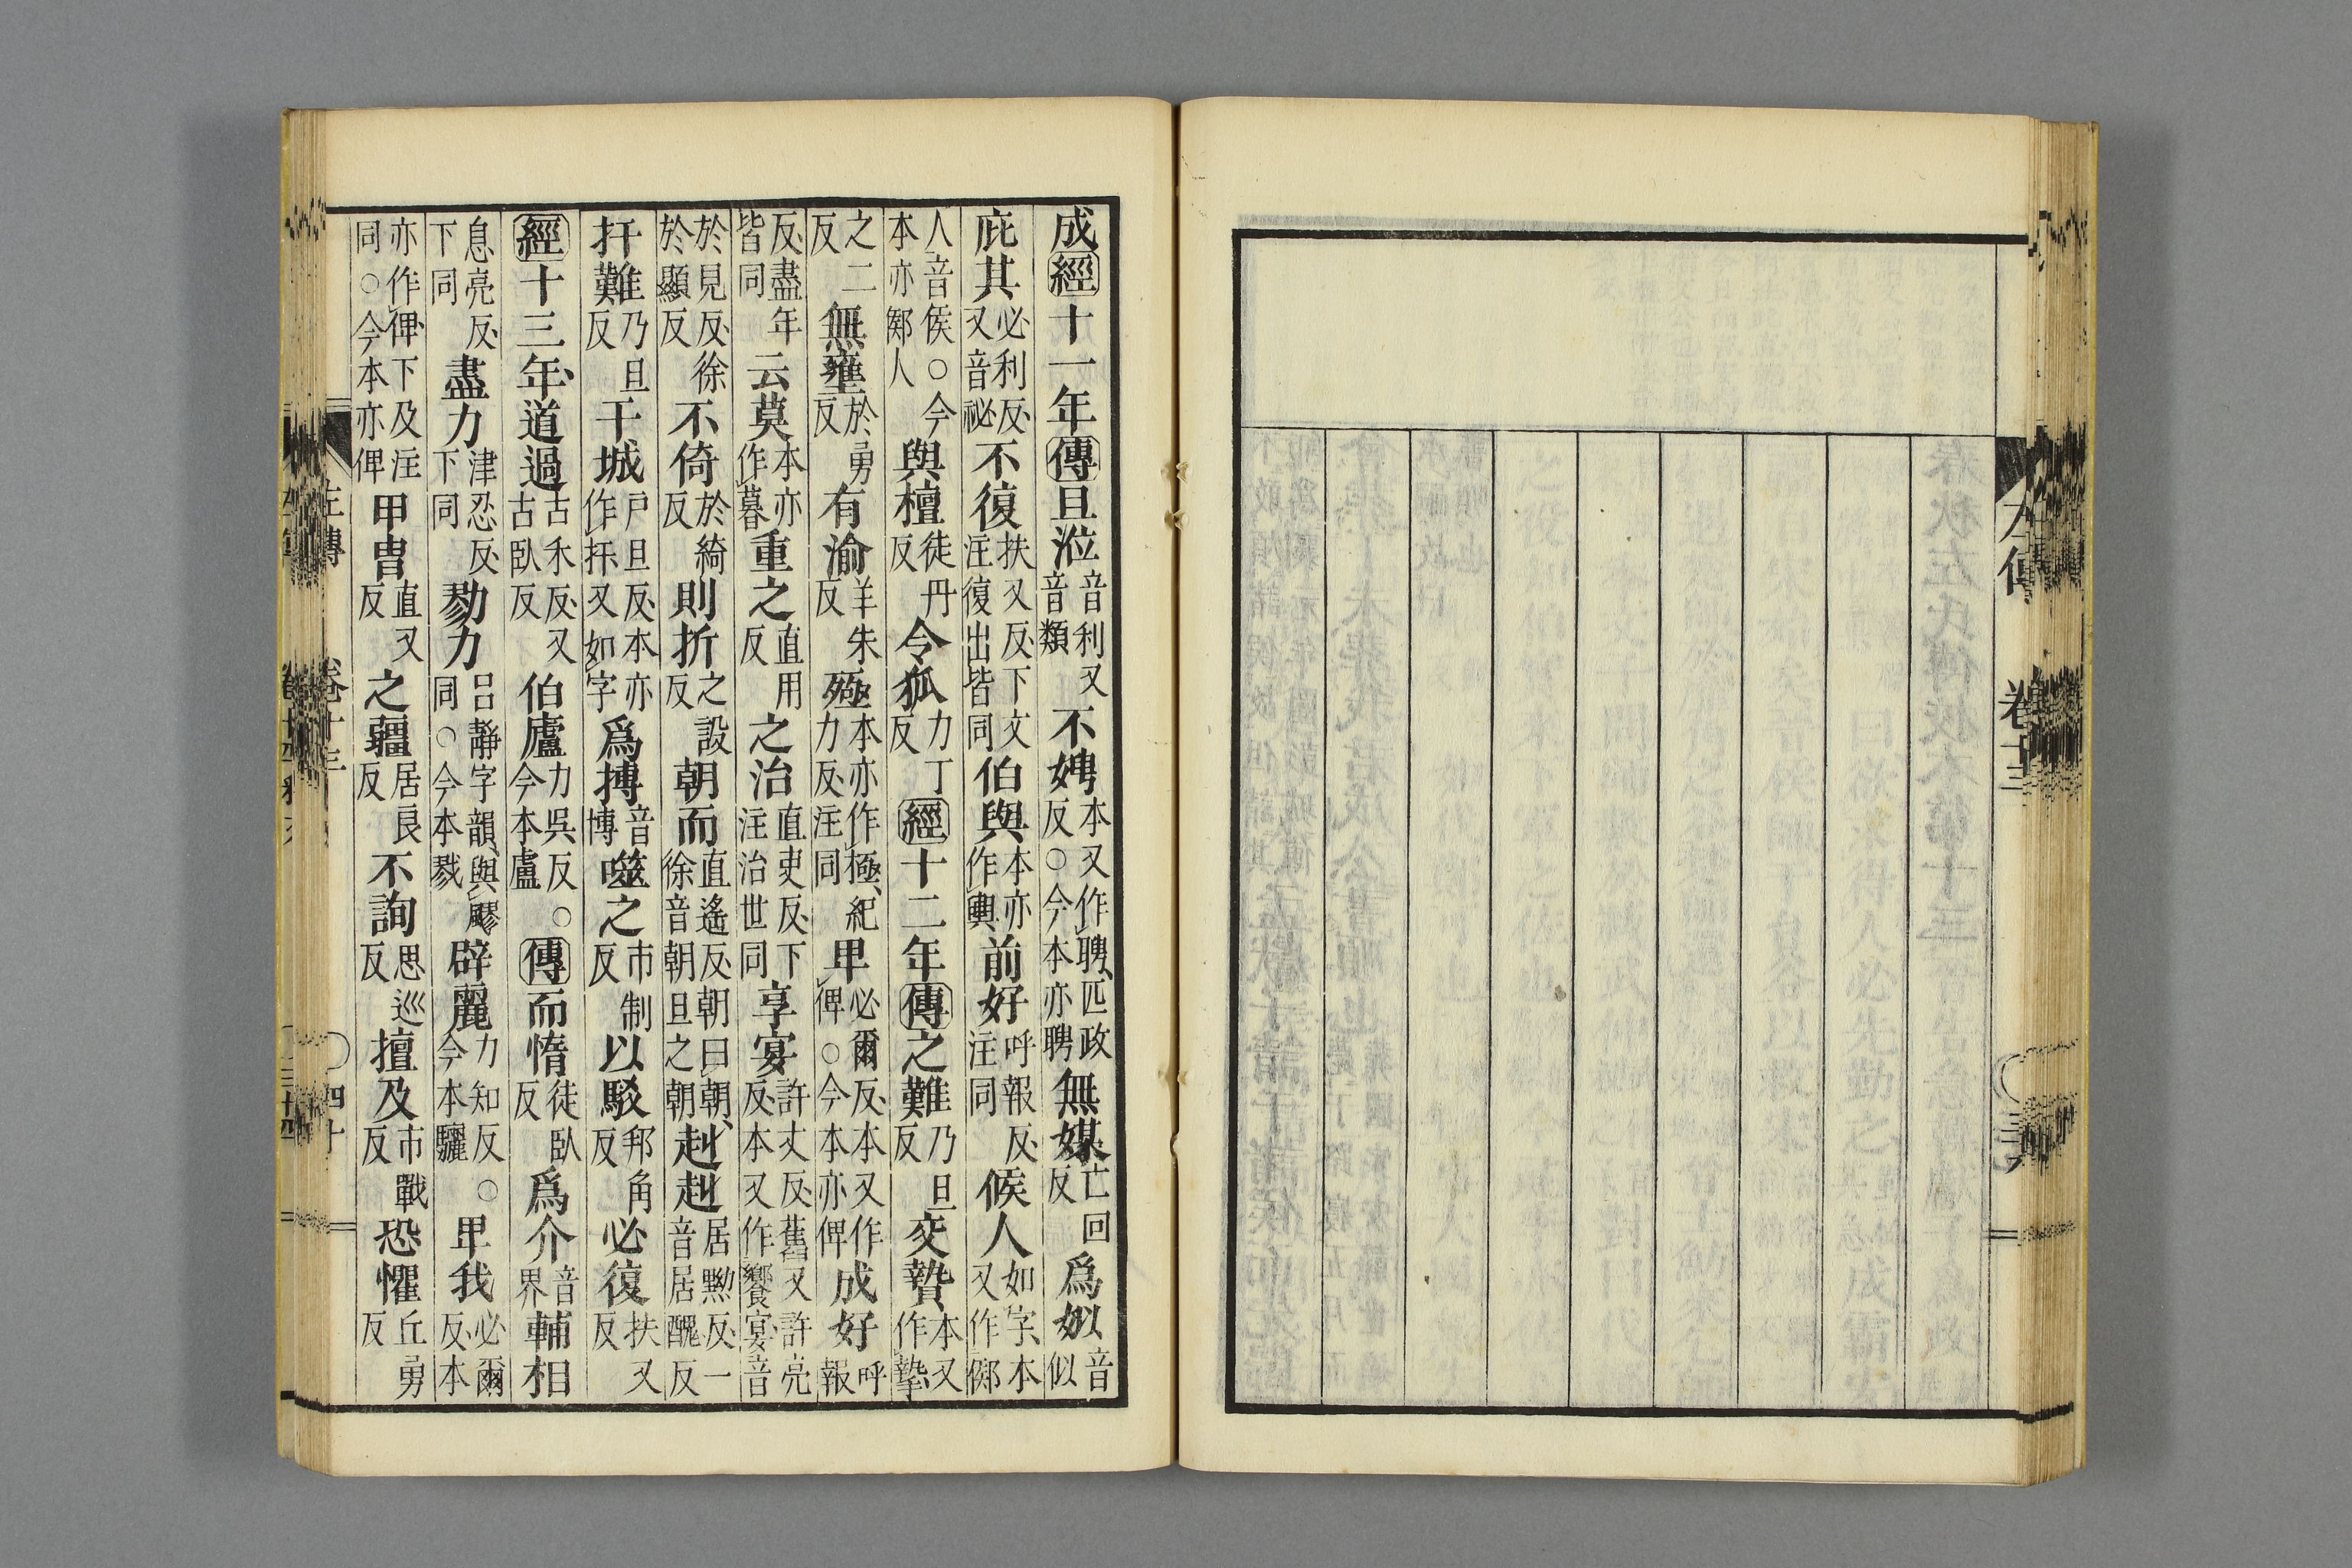 左傳 卷十三
成經十一年傳且涖音利又音類不娉本又作聘、匹政反○今本亦聘無媒亡回反爲姒音似
庇其必利反又音祕不復扶又反下文注復出皆同伯與本亦作輿前好呼報反注同候人如字、本又作鄇
人音侯○今本亦鄇人與檀徒丹反令狐力丁反經十二年傳之難乃旦反交贄本又作摯
之二反無壅於勇反有渝羊朱反殛本亦作極、紀力反注同卑必爾反本又作俾○今本亦俾成好呼報
反盡年皆同云莫本亦作暮重之直用反之治直吏反下注治世同享宴許丈反舊又許亮反本又作饗宴音
於見反徐於顯反不倚於綺反則折之設反朝而直遙反朝曰朝、徐音朝旦之朝赳赳居黝反一音居醜反
扞難乃旦反干城戶旦反本亦作扞又如字爲搏音博噬之市制反以駁邦角反必復扶又反
經十三年道過古禾反又古臥反伯廬力吳反○今本盧傳而惰徒臥反爲介音界輔相
息亮反下同盡力津忍反下同勠力呂靜字韻、與飂同○今本戮辟麗力知反○今本驪卑我必爾反本
亦作俾下及注同○今本亦俾甲冑直又反之疆居良反不詢思巡反擅及市戰反恐懼丘勇反
左傳 卷十三 四十